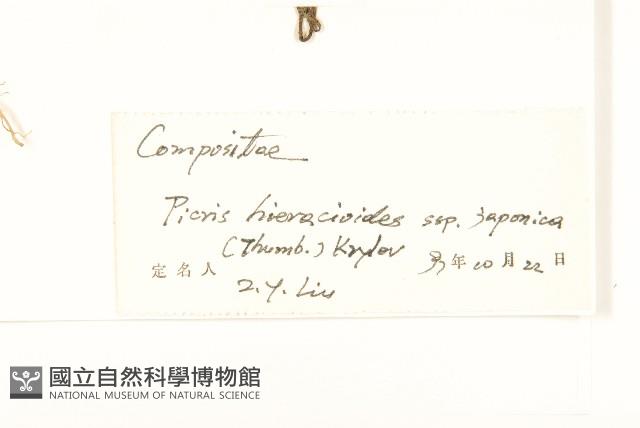 Compositae
Picris hieracioides ssp. japonica
(Thumb.) Krylov
定名人 年 10 月 22 日
Z. Y. Liu
國立自然科學博物館
NATIONAL MUSEUM OF NATURAL SCIENCE